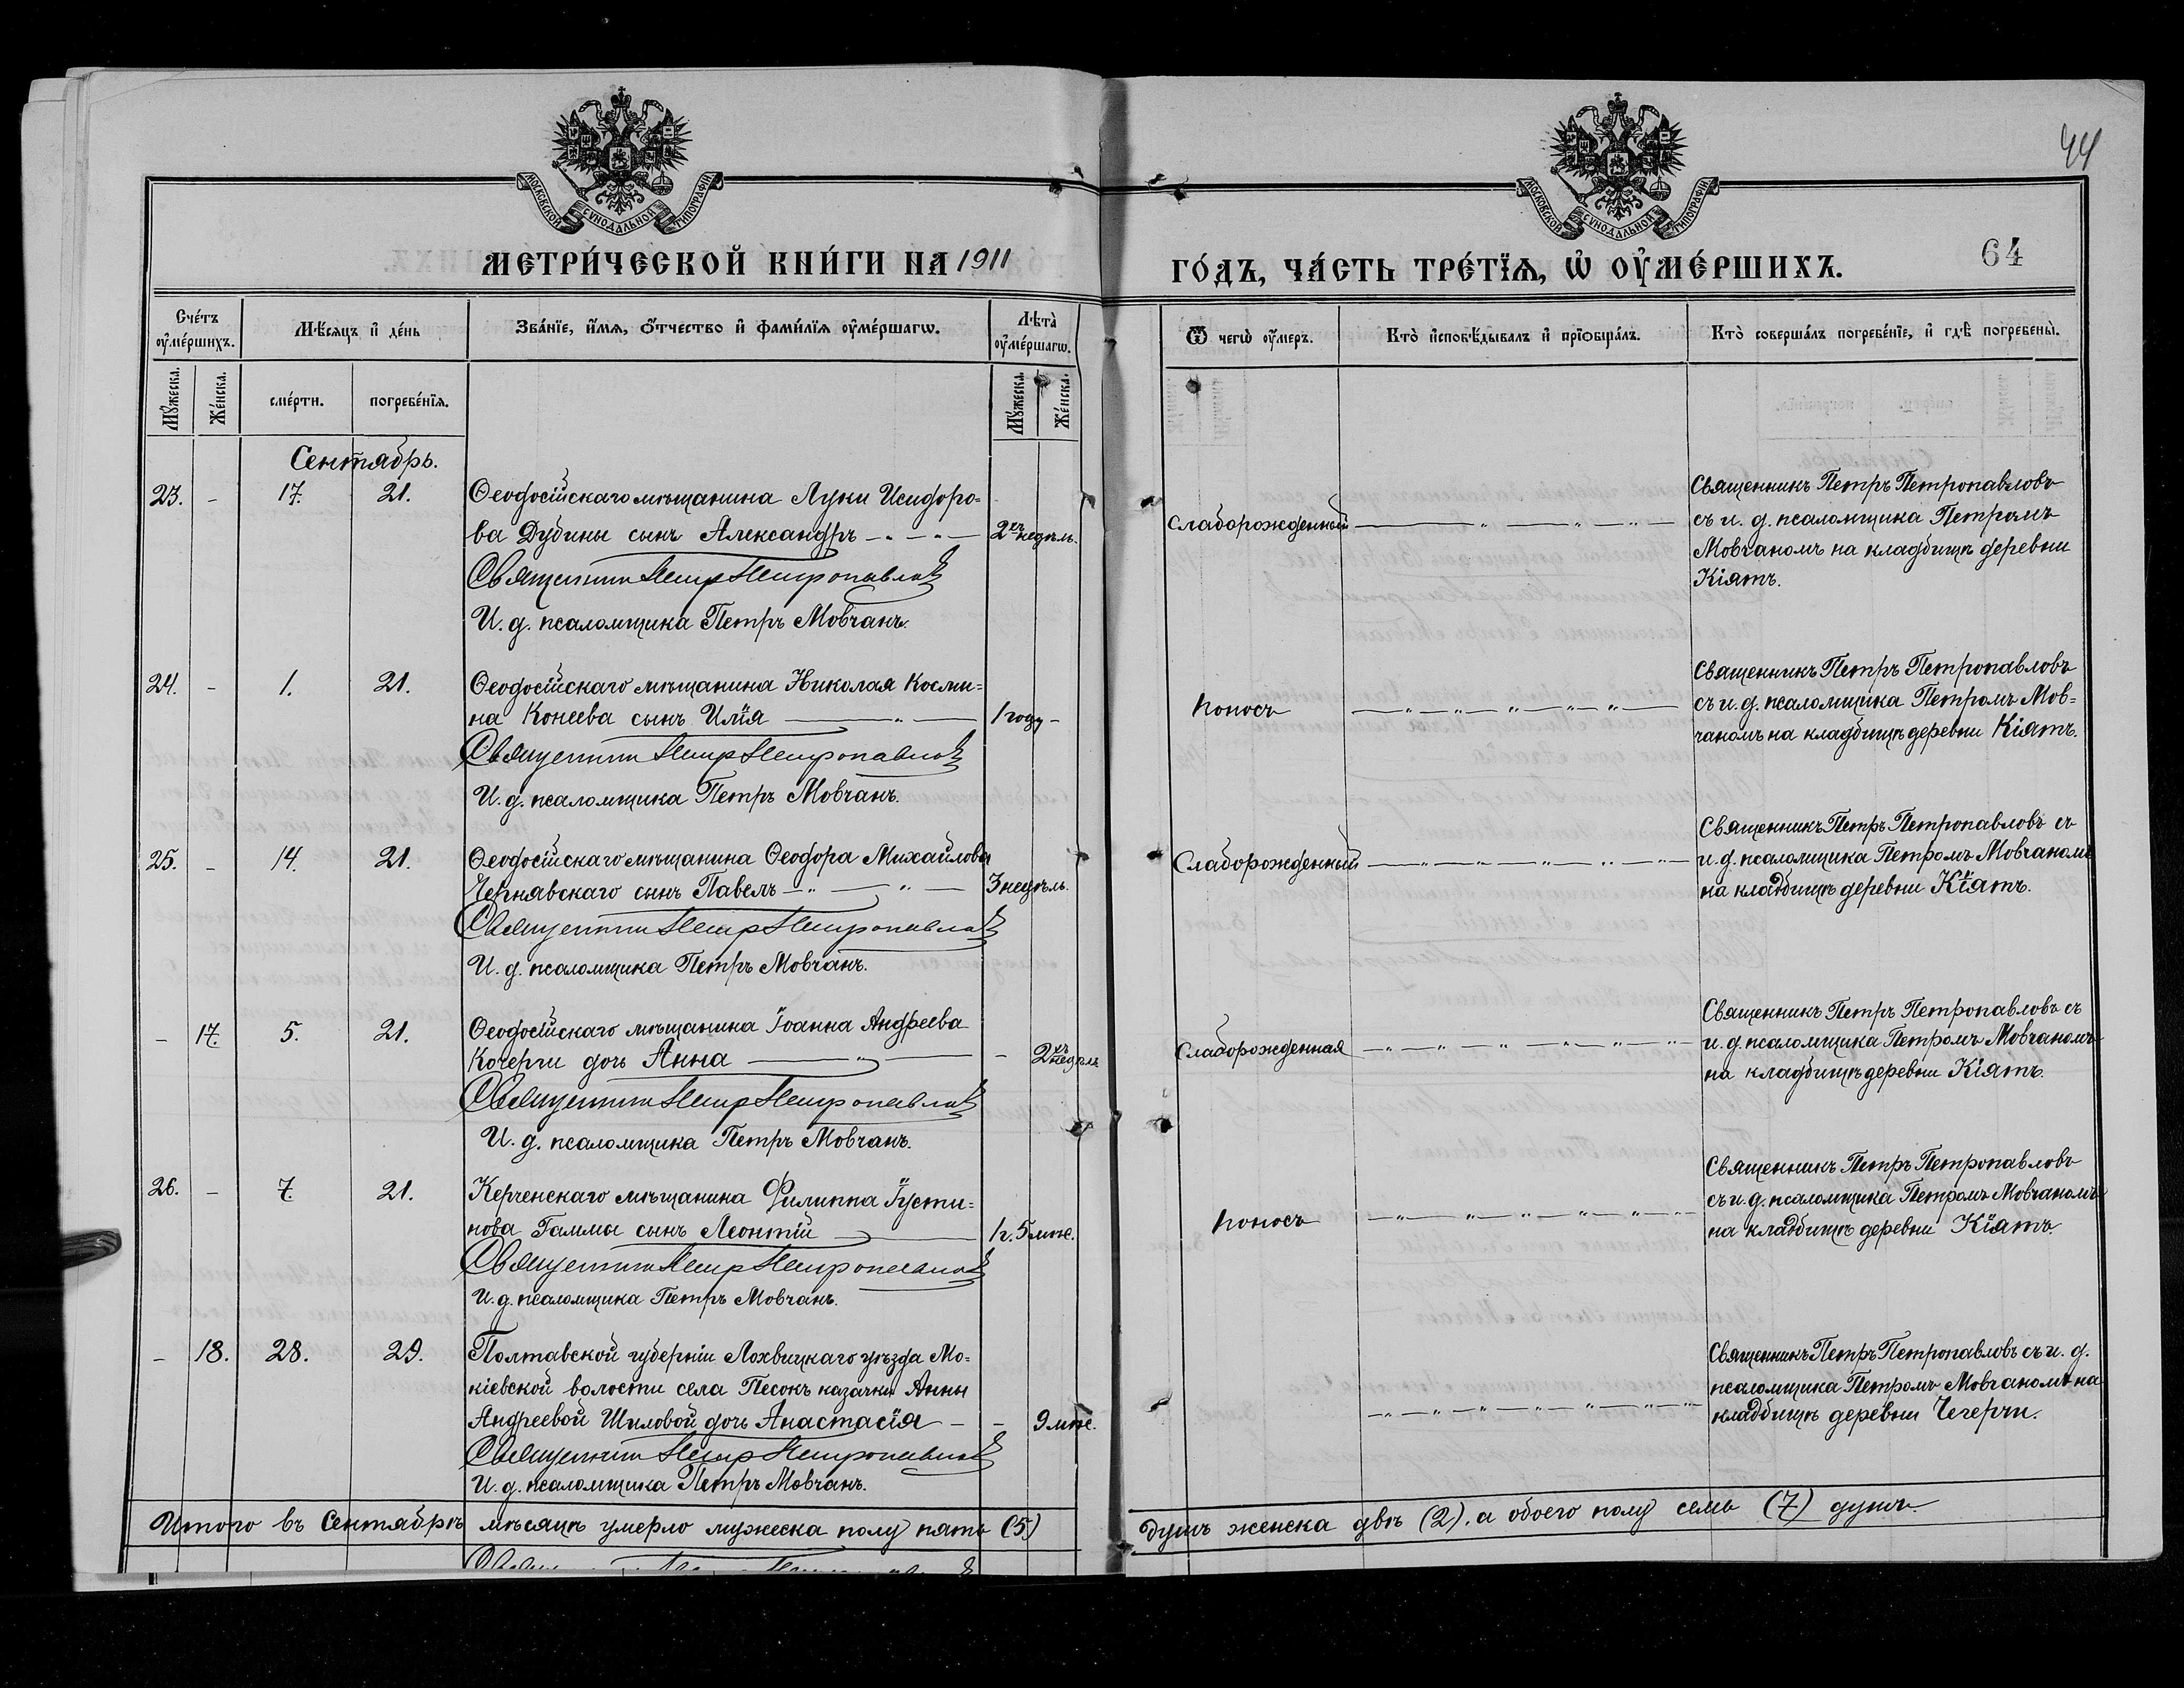 44
МОСКОВСКОЙ СѴНОДАЛЬНОЙ ТИПОГРАФІИ
МОСКОВСКОЙ СѴНОДАЛЬНОЙ ТИПОГРАФІИ
МЕТРИ́ЧЕСКОЙ КНИ́ГИ НА 1911
ГО́ДЪ, ЧА́СТЬ ТРЕ́ТЇѦ, Ѡ҆ ОУ҆МЕ́РШИХЪ.
64
Сче́тъ оу҆ме́ршихъ.
Мѣ́сѧцъ и҆ де́нь
Зва́нїе, и҆́мѧ, ѻ҆́тчество и҆ фами́лїѧ оу҆ме́ршагѡ.
Лѣ́та оу҆ме́ршагѡ.
Ѿ чегѡ̀ оу҆́меръ.
Кто̀ и҆сповѣ́дывалъ и҆ прїѡбща́лъ.
Кто̀ соверша́лъ погребе́нїе, и҆ гдѣ̀ погребены̀.
Мꙋ́жеска.
Же́нска.
сме́рти.
погребе́нїѧ.
Мꙋ́жеска.
Же́нска.
Сентябрь.
23. - 17. 21.
Ѳеодосійскаго мѣщанина Луки Исидоро=
ва Дубины сынъ Александръ
2хъ недѣль.
Священникъ Петръ Петропавловъ
И. д. псаломщика Петръ Мовчанъ.
Слаборожденный
Священникъ Петръ Петропавловъ
съ и. д. псаломщика Петромъ
Мовчаномъ на кладбищѣ деревни
Кіятъ.
24. - 1. 21.
Ѳеодосійскаго мѣщанина Николая Косми=
на Конеева сынъ Илія
1 году -
Священникъ Петръ Петропавловъ
И. д. псаломщика Петръ Мовчанъ.
поносъ
Священникъ Петръ Петропавловъ
съ и. д. псаломщика Петромъ Мов=
чаномъ на кладбищѣ деревни Кіятъ.
25. - 14. 21.
Ѳеодосійскаго мѣщанина Ѳеодора Михайлова
Чернявскаго сынъ Павелъ
3 недѣль.
Священникъ Петръ Петропавловъ
И. д. псаломщика Петръ Мовчанъ.
Слаборожденный
Священникъ Петръ Петропавловъ съ
и. д. псаломщика Петромъ Мовчаномъ
на кладбищѣ деревни Кіятъ.
- 17. 5. 21.
Ѳеодосійскаго мѣщанина Іоанна Андреева
Кочерги дочь Анна
- 2хъ недѣль
Священникъ Петръ Петропавловъ
И. д. псаломщика Петръ Мовчанъ.
Слаборожденная
Священникъ Петръ Петропавловъ съ
и. д. псаломщика Петромъ Мовчаномъ
на кладбищѣ деревни Кіятъ.
26. - 7. 21.
Керченскаго мѣщанина Филиппа Іусти=
нова Гаммы сынъ Леонтій
1 г. 5 мѣс.
Священникъ Петръ Петропавловъ
И. д. псаломщика Петръ Мовчанъ.
поносъ
Священникъ Петръ Петропавловъ
съ и. д. псаломщика Петромъ Мовчаномъ
на кладбищѣ деревни Кіятъ.
- 18. 28. 29.
Полтавской губерніи Лохвицкаго уѣзда Мо=
кіевской волости села Песокъ казачки Анны
Андреевой Шиловой дочь Анастасія
- 9 мѣс.
Священникъ Петръ Петропавловъ
И. д. псаломщика Петръ Мовчанъ.
Священникъ Петръ Петропавловъ съ и. д.
псаломщика Петромъ Мовчаномъ на
кладбищѣ деревни Чегерчи.
Итого въ Сентябрѣ мѣсяцѣ умерло мужеска полу пять (5)
душъ женска двѣ (2). а обоего полу семь (7) душъ